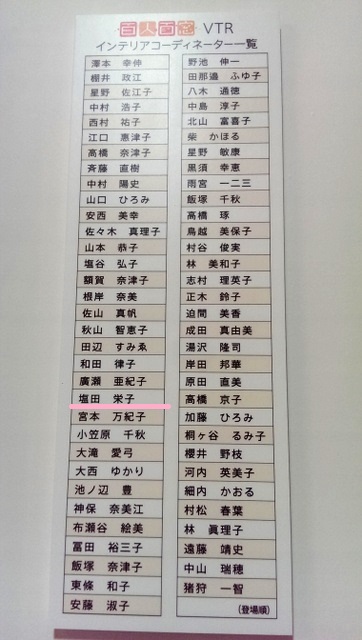 百人百窓 VTR
インテリアコーディネーター一覧
澤本 幸伸
棚井 政江
星野 佐江子
中村 浩子
西村 祐子
江口 惠津子
高橋 奈津子
斉藤 直樹
中村 陽史
山口 ひろみ
安西 美幸
佐々木 真理子
山本 恭子
塩谷 弘子
額賀 奈津子
根岸 奈美
佐山 真帆
秋山 智恵子
田辺 すみゑ
和田 律子
廣瀬 亜紀子
塩田 栄子
宮本 万紀子
小笠原 千秋
大滝 愛弓
大西 ゆかり
池ノ辺 豊
神保 奈美江
布瀬谷 絵美
冨田 裕三子
飯塚 奈津子
東條 和子
安藤 淑子
野池 伸一
田那邉 ふゆ子
八木 通徳
中島 淳子
北山 富喜子
柴 かほる
星野 敏康
黒須 幸恵
雨宮 一二三
飯塚 千秋
高橋 琢
鳥越 美保子
村谷 俊実
林 美和子
志村 理英子
正木 鈴子
迫間 美香
成田 真由美
湯沢 隆司
岸田 邦華
原田 直美
高橋 京子
加藤 ひろみ
桐ヶ谷 るみ子
櫻井 野枝
河内 英美子
細内 かおる
村松 春葉
林 眞理子
遠藤 靖史
中山 瑞穂
猪狩 一智
(登場順)